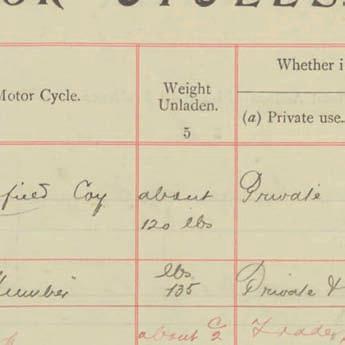 Motor Cycle.
Weight
Unladen.
5
Whether i
(a) Private use.
field Coy
about
120 lbs
Private
Humber
lbs
135
Private &
about
2
Trader